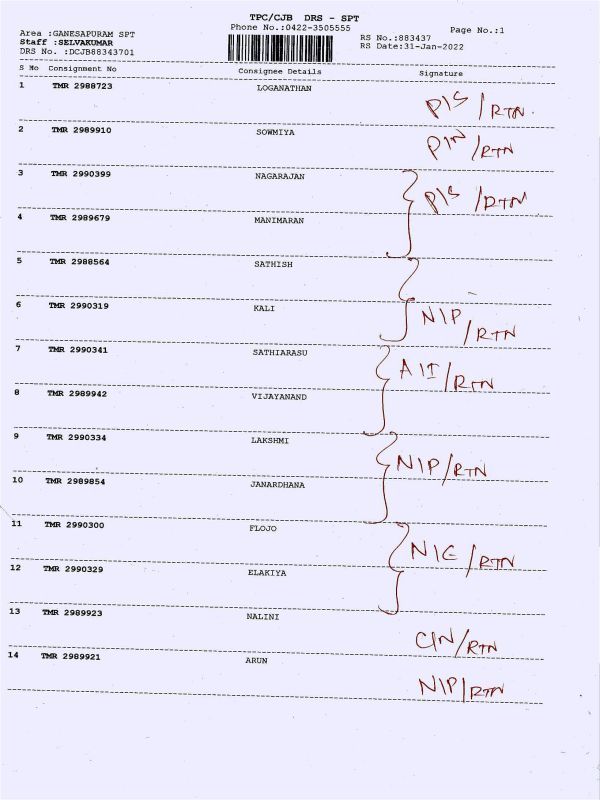 TPC/CJB DRS - SPT
Phone No.:0422-3505555
Page No.:1
Area :GANESAPURAM SPT
Staff :SELVAKUMAR
DRS No. :DCJB88343701
RS No.:883437
RS Date:31-Jan-2022
S No Consignment No Consignee Details Signature
1 TMR 2988723 LOGANATHAN
P\S /RTN.
2 TMR 2989910 SOWMIYA
P\N /RTN
3 TMR 2990399 NAGARAJAN
P\S /RTN
4 TMR 2989679 MANIMARAN
5 TMR 2988564 SATHISH
6 TMR 2990319 KALI
N\P /RTN
7 TMR 2990341 SATHIARASU
/RTN
8 TMR 2989942 VIJAYANAND
9 TMR 2990334 LAKSHMI
N\P/RTN
10 TMR 2989854 JANARDHANA
11 TMR 2990300 FLOJO
/RTN
12 TMR 2990329 ELAKIYA
13 TMR 2989923 NALINI
C\N/RTN
14 TMR 2989921 ARUN
N\P/RTN